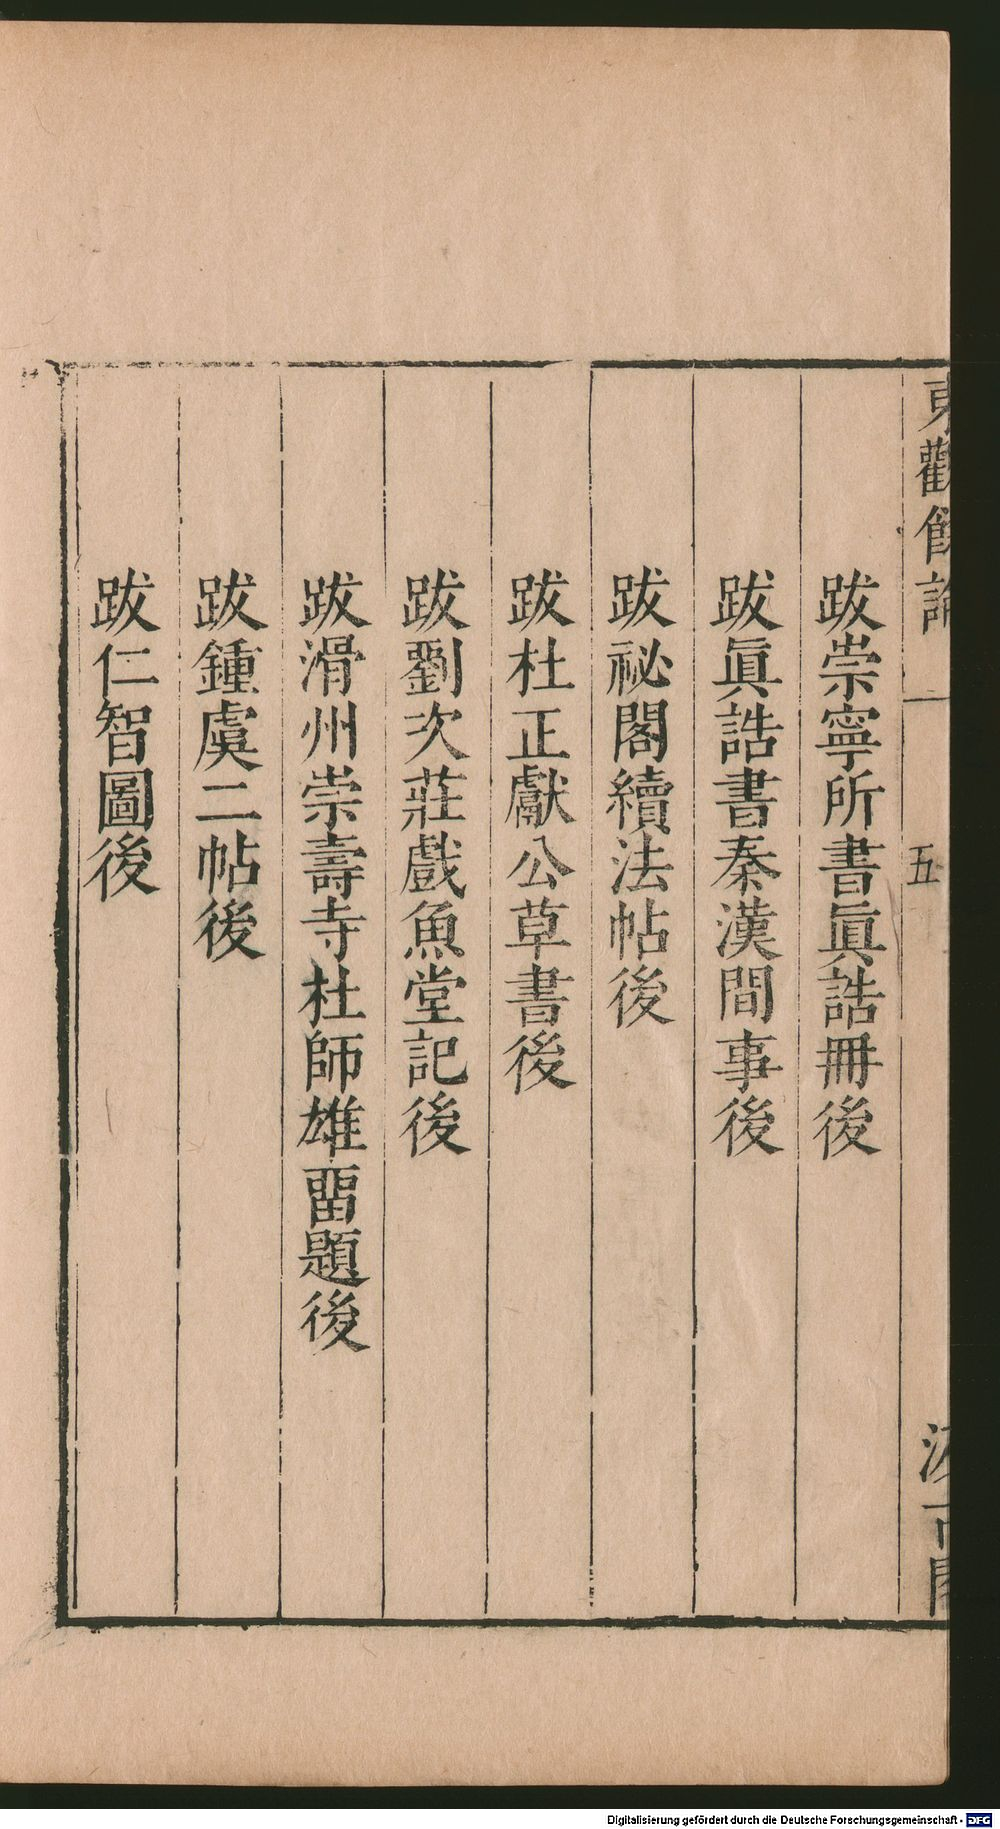 東觀餘論
一
五
汲古閣
跋崇寧所書眞誥冊後
跋眞誥書秦漢間事後
跋祕閣續法帖後
跋杜正獻公草書後
跋劉次莊戲魚堂記後
跋滑州崇壽寺杜師雄畱題後
跋鍾虞二帖後
跋仁智圖後
Digitalisierung gefördert durch die Deutsche Forschungsgemeinschaft - DFG